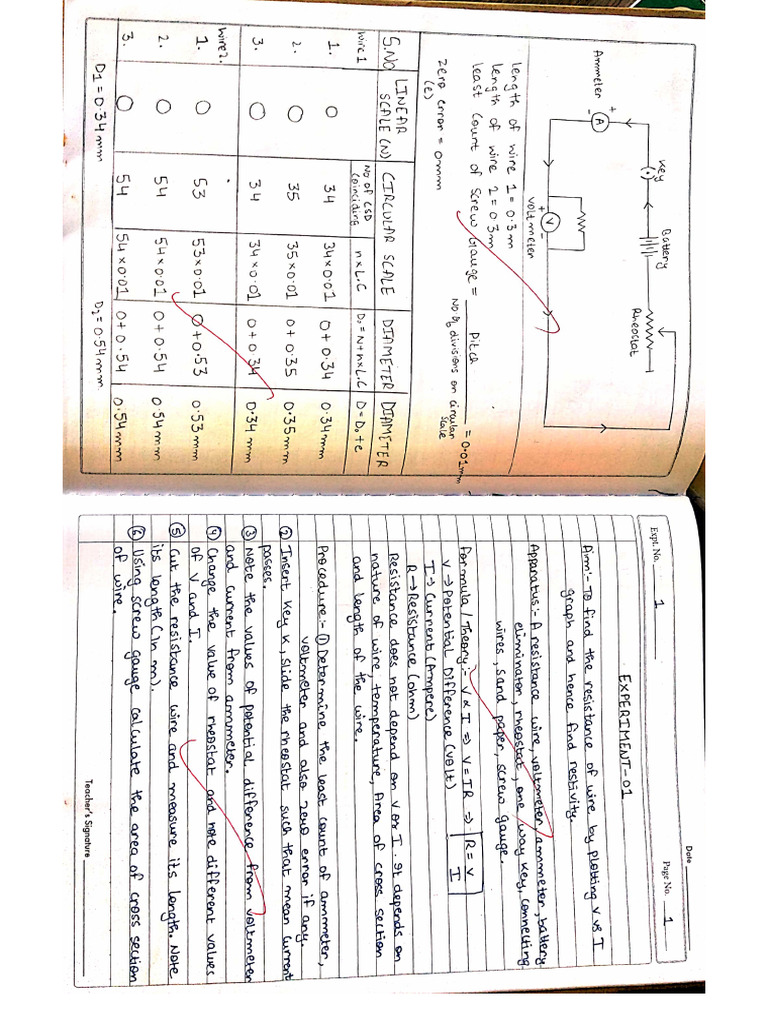 Key
Battery
Rheostat
Ammeter
+ A -
voltmeter
+ V -
length of wire 1 = 0.3 m
length of wire 2 = 0.3 m
least count of screw Gauge = Pitch / No of divisions on circular scale = 0.01mm
zero error = 0mm
(e)
S.No LINEAR SCALE (N) CIRCULAR SCALE DIAMETER DIAMETER
No of CSD coinciding n×L.C D₀=N+n×L.C D=D₀+e
wire 1
1. 0 34 34×0.01 0+0.34 0.34mm
2. 0 35 35×0.01 0+0.35 0.35mm
3. 0 34 34×0.01 0+0.34 0.34mm
wire 2.
1. 0 53 53×0.01 0+0.53 0.53mm
2. 0 54 54×0.01 0+0.54 0.54mm
3. 0 54 54×0.01 0+0.54 0.54mm
D1 = 0.34 mm D2 = 0.54mm
Date
Expt. No. 1 Page No. 1
EXPERIMENT-01
Aim:- To find the resistance of wire by plotting V vs I
graph and hence find restivity.
Apparatus:- A resistance wire, voltmeter, ammeter, battery
eliminator, rheostat, one way key, connecting
wires, sand paper, screw gauge.
Formula / Theory:- V ∝ I ⇒ V=IR ⇒ R = V/I
V→Potential Difference (volt)
I→Current (Ampere)
R→Resistance (ohm)
Resistance does not depend on V or I. It depends on
nature of wire, temperature, Area of cross section
and length of the wire.
Procedure:- ① Determine the least count of ammeter,
voltmeter and also zero error if any.
② Insert key K, slide the rheostat such that mean current
passes.
③ Note the values of potential difference from voltmeter
and current from ammeter.
④ Change the value of rheostat and note different values
of V and I.
⑤ Cut the resistance wire and measure its length. Note
its length (in m).
⑥ Using screw gauge calculate the area of cross section
of wire.
Teacher's Signature